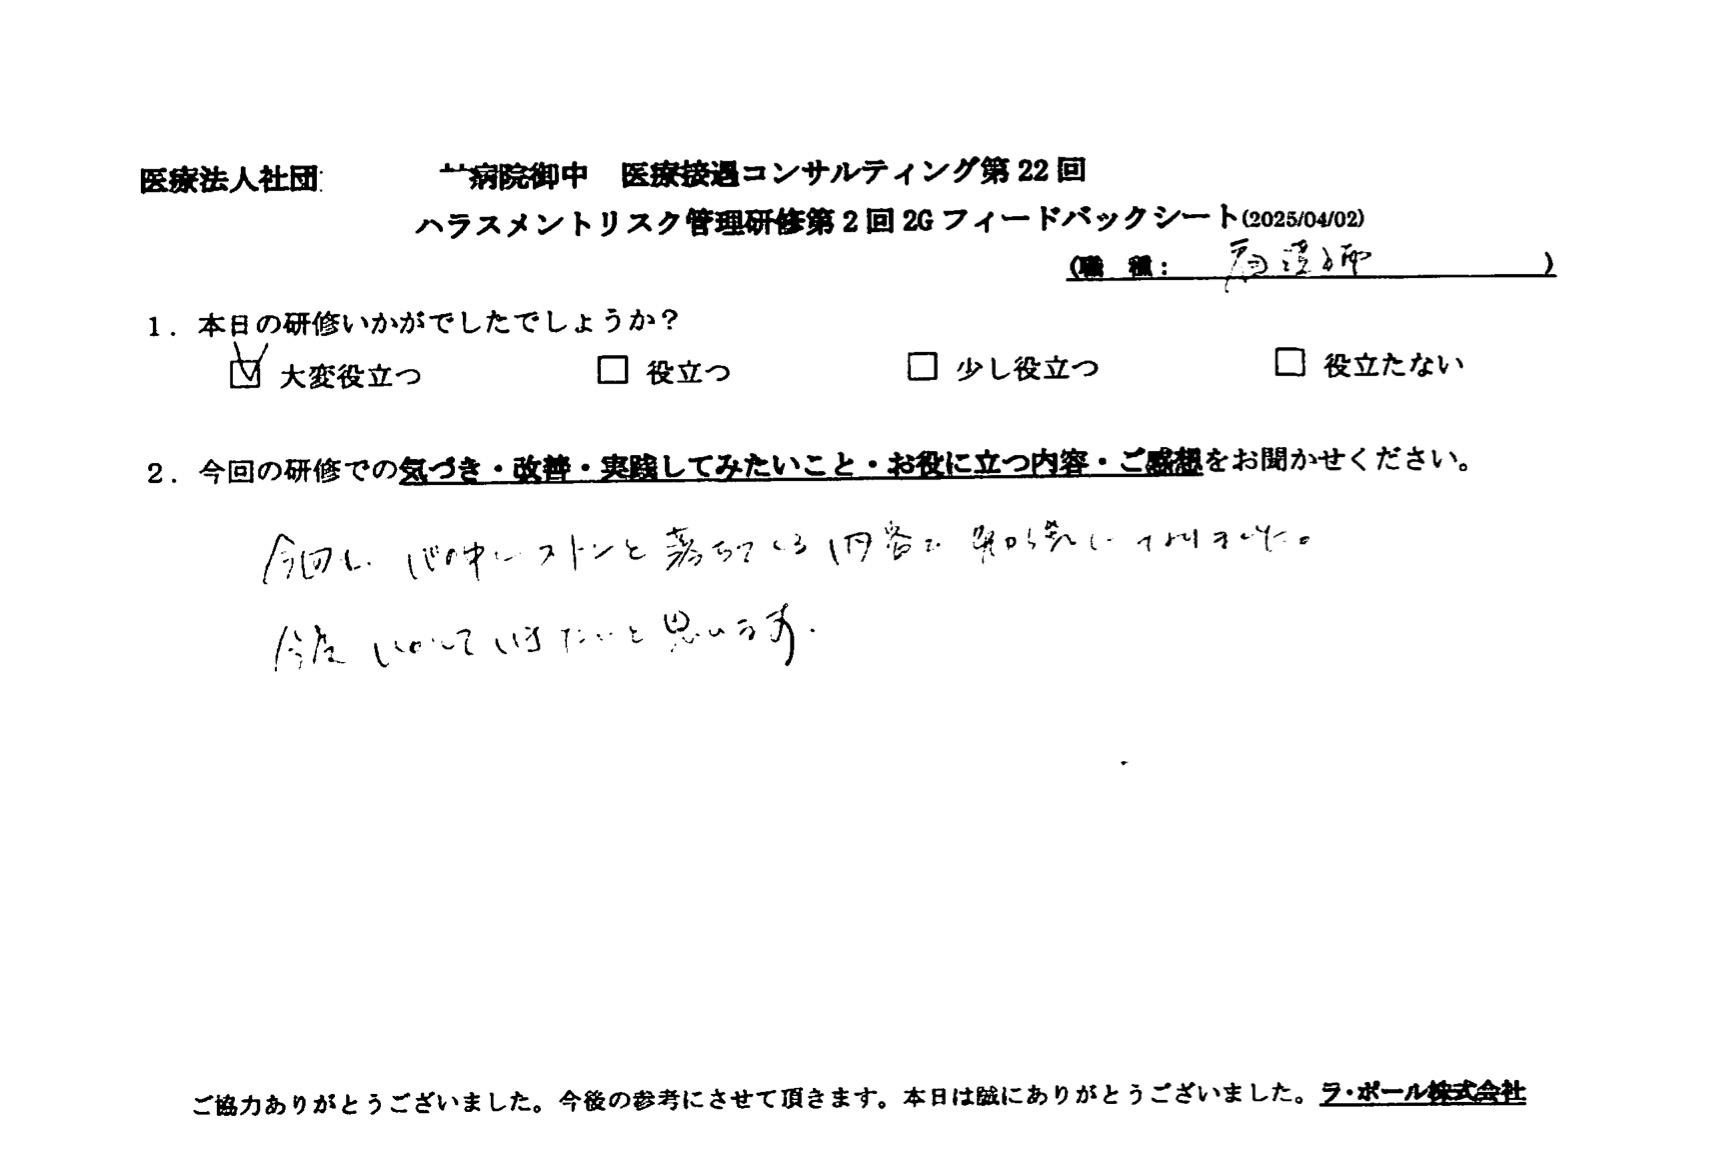 医療法人社団 病院御中 医療接遇コンサルティング第22回
ハラスメントリスク管理研修第2回2Gフィードバックシート(2025/04/02)
(職 種: 看護師 )
1. 本日の研修いかがでしたでしょうか?
☑ 大変役立つ □ 役立つ □ 少し役立つ □ 役立たない
2. 今回の研修での気づき・改善・実践してみたいこと・お役に立つ内容・ご感想をお聞かせください。
今回も 心の中にストンと落ちてくる内容で
今度 いかして いきたいと思います.
ご協力ありがとうございました。今後の参考にさせて頂きます。本日は誠にありがとうございました。ラ・ポール株式会社